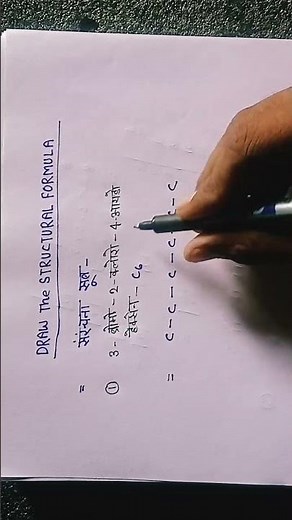 DRAW The STRUCTURAL FORMULA
= संरचना सूत्र -
① 3 - ब्रोमो - 2 - क्लोरो - 4 - आयडो
हेक्सेन - C6
= C - C - C - C - C - C